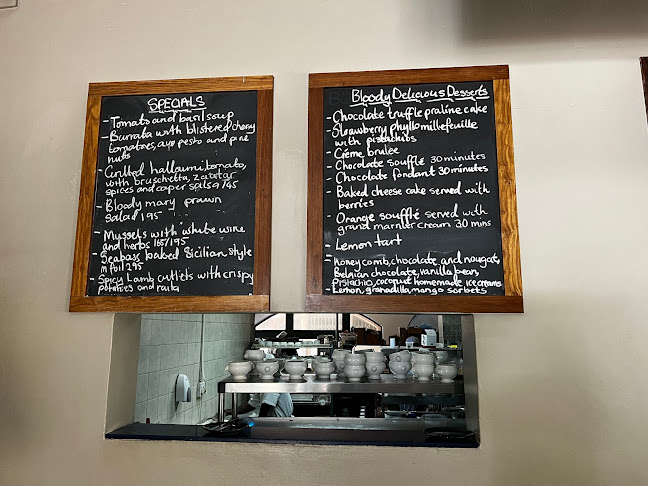 SPECIALS
- Tomato and basil soup
- Burrata with blistered cherry
tomatoes, avo pesto and pine
nuts
- Grilled halloumi, tomato,
with bruschetta, zaatar
spices and caper salsa 145
- Bloody mary prawn
salad 195
- Mussels with white wine
and herbs 165/195
- Seabass baked Sicilian style
in foil 295
- Spicy Lamb cutlets with crispy
potatoes and raita
Bloody Delicious Desserts
- Chocolate truffle praline cake
- Strawberry phyllo millefeuille
with pistachios
- Créme brulee
- Chocolate souffle 30 minutes
- Chocolate fondant 30 minutes
- Baked cheese cake served with
berries
- Orange soufflé served with
grand marnier cream 30 mins
- Lemon tart
- honeycomb, chocolate and nougat,
Belgian chocolate, vanilla bean,
pistachio, coconut homemade ice creams
- Lemon, granadilla, mango sorbets